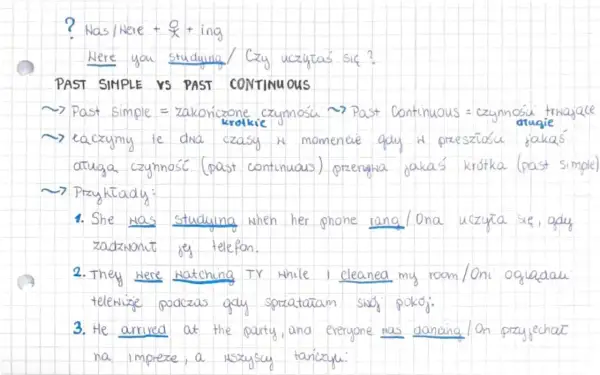 ? Was/Were + + ing
Were you studying / Czy uczyłaś się?
PAST SIMPLE VS PAST CONTINUOUS
~> Past Simple = zakończone czynności ~> Past Continuous = czynności trwające
krótkie długie
~> Łączymy te dwa czasy w momencie gdy w przeszłości jakaś
długa czynność (past continuous) przerywa jakaś krótka (past simple)
~> Przykłady:
1. She was studying when her phone rang / Ona uczyła się, gdy
zadzwonił jej telefon.
2. They were watching TV while I cleaned my room / Oni oglądali
telewizję podczas gdy sprzątałam swój pokój.
3. He arrived at the party, and everyone was dancing / On przyjechał
na imprezę, a wszyscy tańczyli.